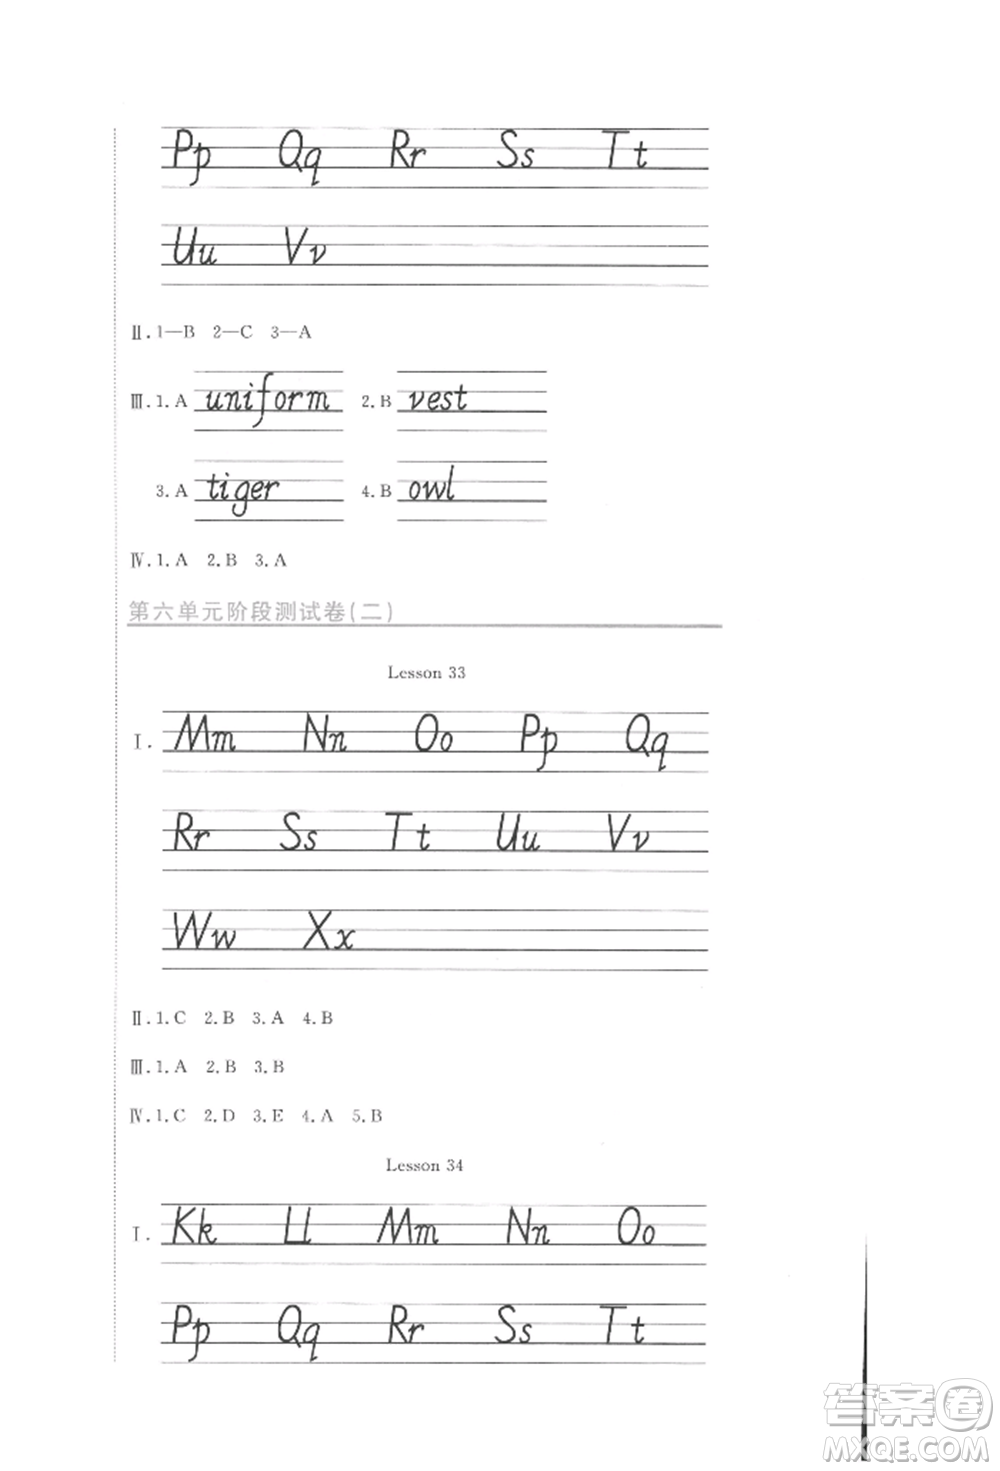 Pp Qq Rr Ss Tt
Uu Vv
Ⅱ.1—B 2—C 3—A
Ⅲ.1.A uniform 2.B vest
3.A tiger 4.B owl
Ⅳ.1.A 2.B 3.A
第六单元阶段测试卷(二)
Lesson 33
Ⅰ. Mm Nn Oo Pp Qq
Rr Ss Tt Uu Vv
Ww Xx
Ⅱ.1.C 2.B 3.A 4.B
Ⅲ.1.A 2.B 3.B
Ⅳ.1.C 2.D 3.E 4.A 5.B
Lesson 34
Ⅰ. Kk Ll Mm Nn Oo
Pp Qq Rr Ss Tt
答案圈
MXQE.COM